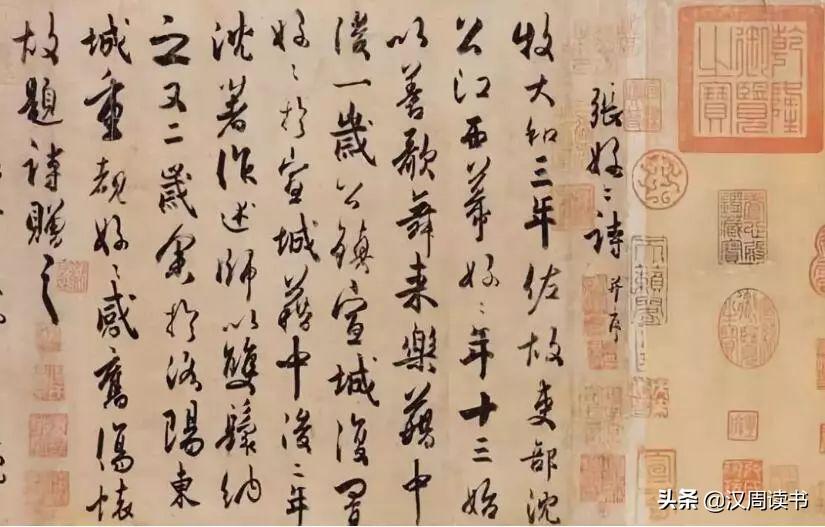 乾隆御覽之寶
天籟閣
張好〻詩 并序
牧大和三年佐故吏部沈
公江西幕好〻年十三始
以善歌舞來樂籍中
後一歲公鎮宣城復置
好〻於宣城籍中後二年
沈著作述師以雙鬟納
之又二歲余於洛陽東
城重覩好〻感舊傷懷
故題詩贈之
头条 @汉周读书